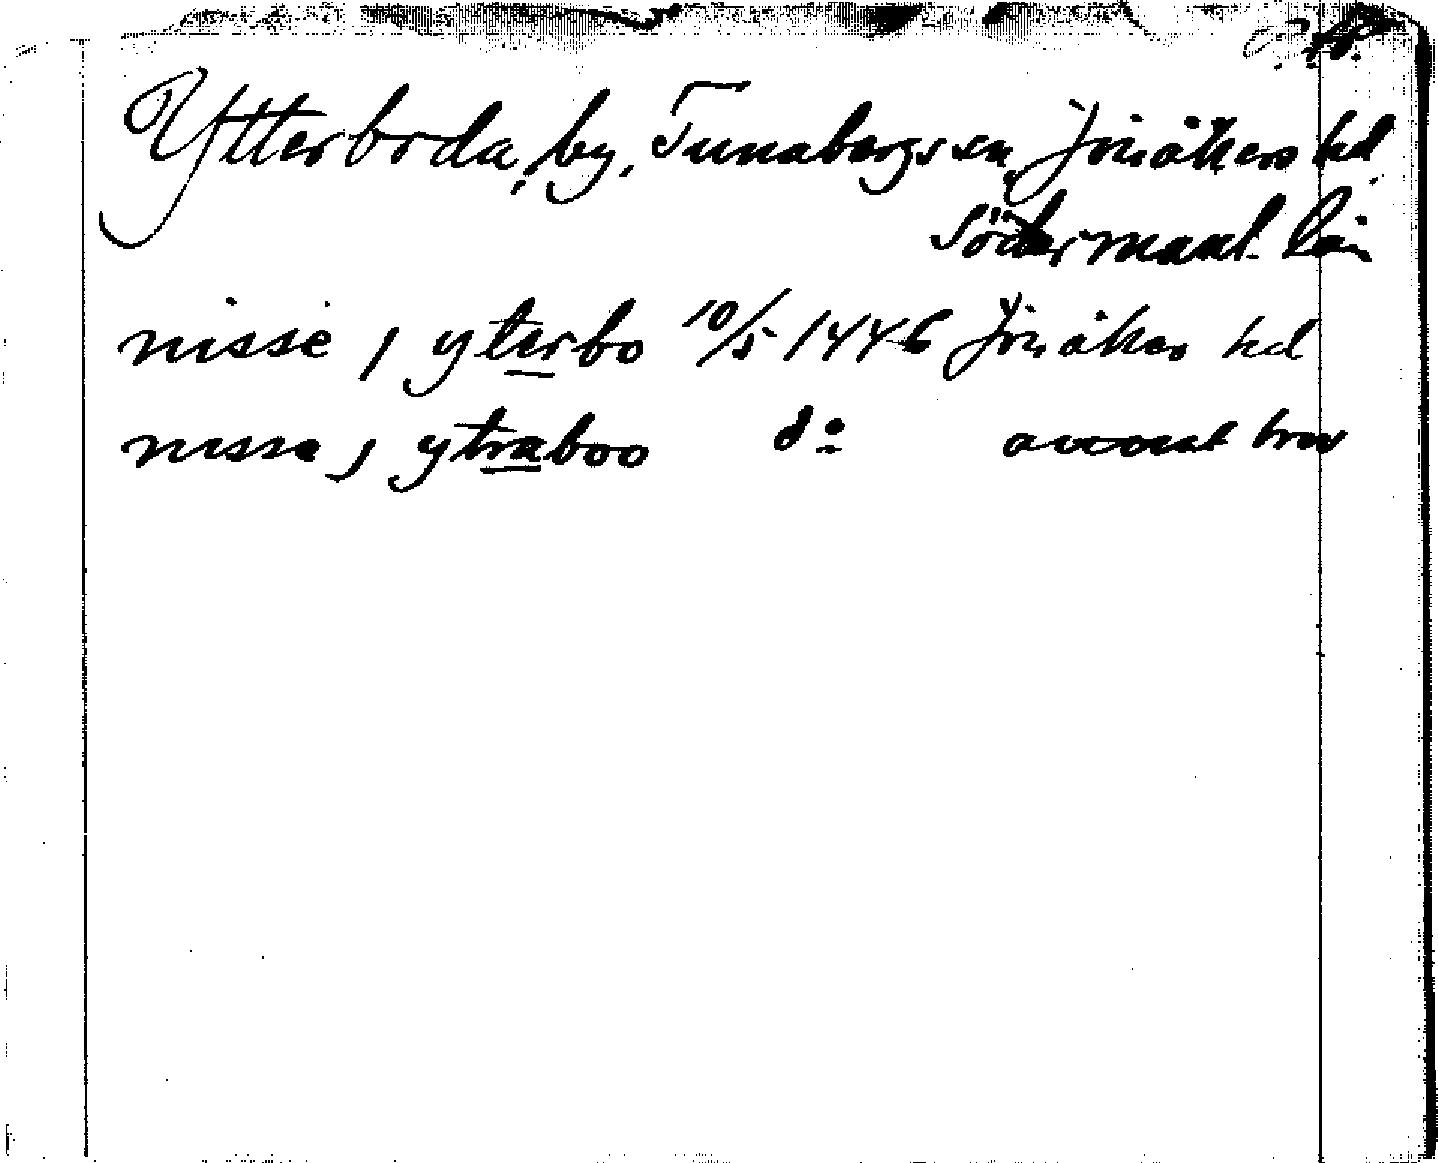 Ytterboda, by, Tunabergs sn, Jönåkers hd
Södermanl. län
nisse j yterbo 10/5 1446 Jönåkers hd
nisse j ytraboo do annat brev